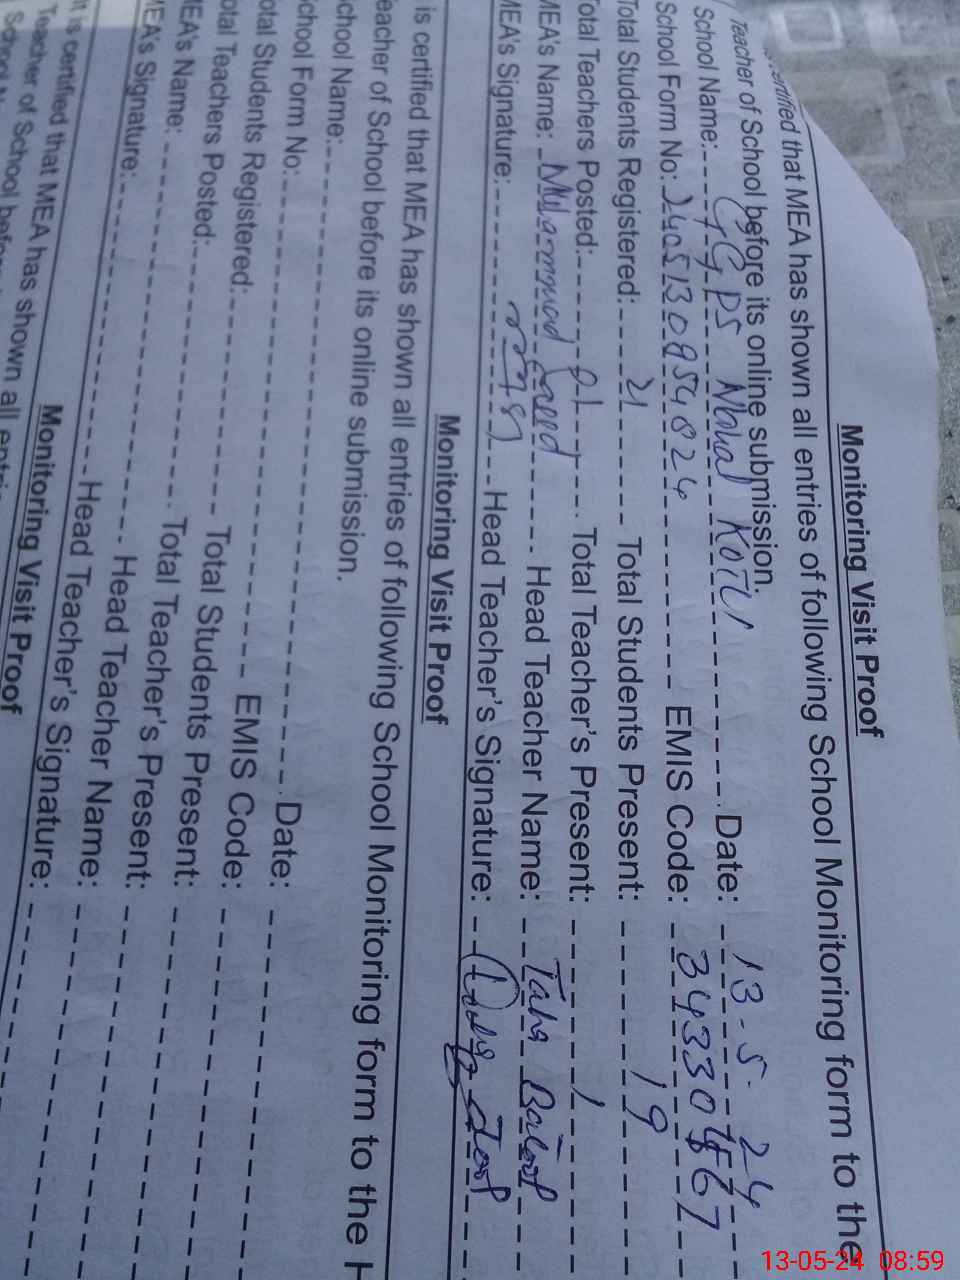 Monitoring Visit Proof
certified that MEA has shown all entries of following School Monitoring form to the
Teacher of School before its online submission.
School Name: GGPS Nahal Kotli Date: 13-5-24
School Form No: EMIS Code:
Total Students Registered: 21 Total Students Present: 19
Total Teachers Posted: Total Teacher's Present: 1
MEA's Name: Muhammad Saeed Head Teacher Name:
MEA's Signature: Head Teacher's Signature:
Monitoring Visit Proof
is certified that MEA has shown all entries of following School Monitoring form to the H
eacher of School before its online submission.
chool Name: Date:
chool Form No: EMIS Code:
otal Students Registered: Total Students Present:
otal Teachers Posted: Total Teacher's Present:
MEA's Name: Head Teacher Name:
MEA's Signature: Head Teacher's Signature:
Monitoring Visit Proof
It is certified that MEA has shown all
Teacher of School
13-05-24 08:59